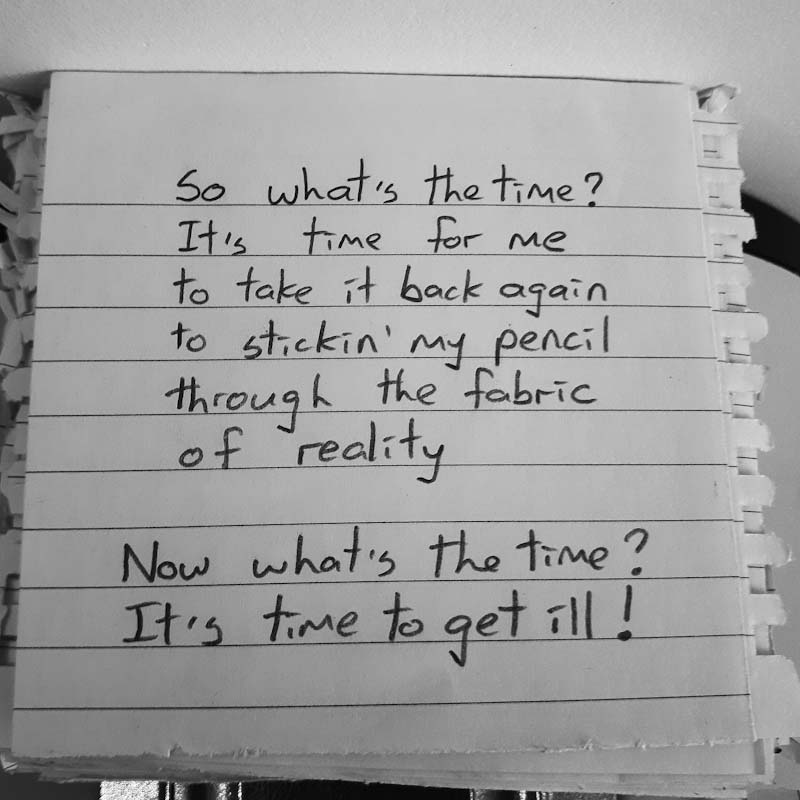 So what's the time?
It's time for me
to take it back again
to stickin' my pencil
through the fabric
of reality
Now what's the time?
It's time to get ill!